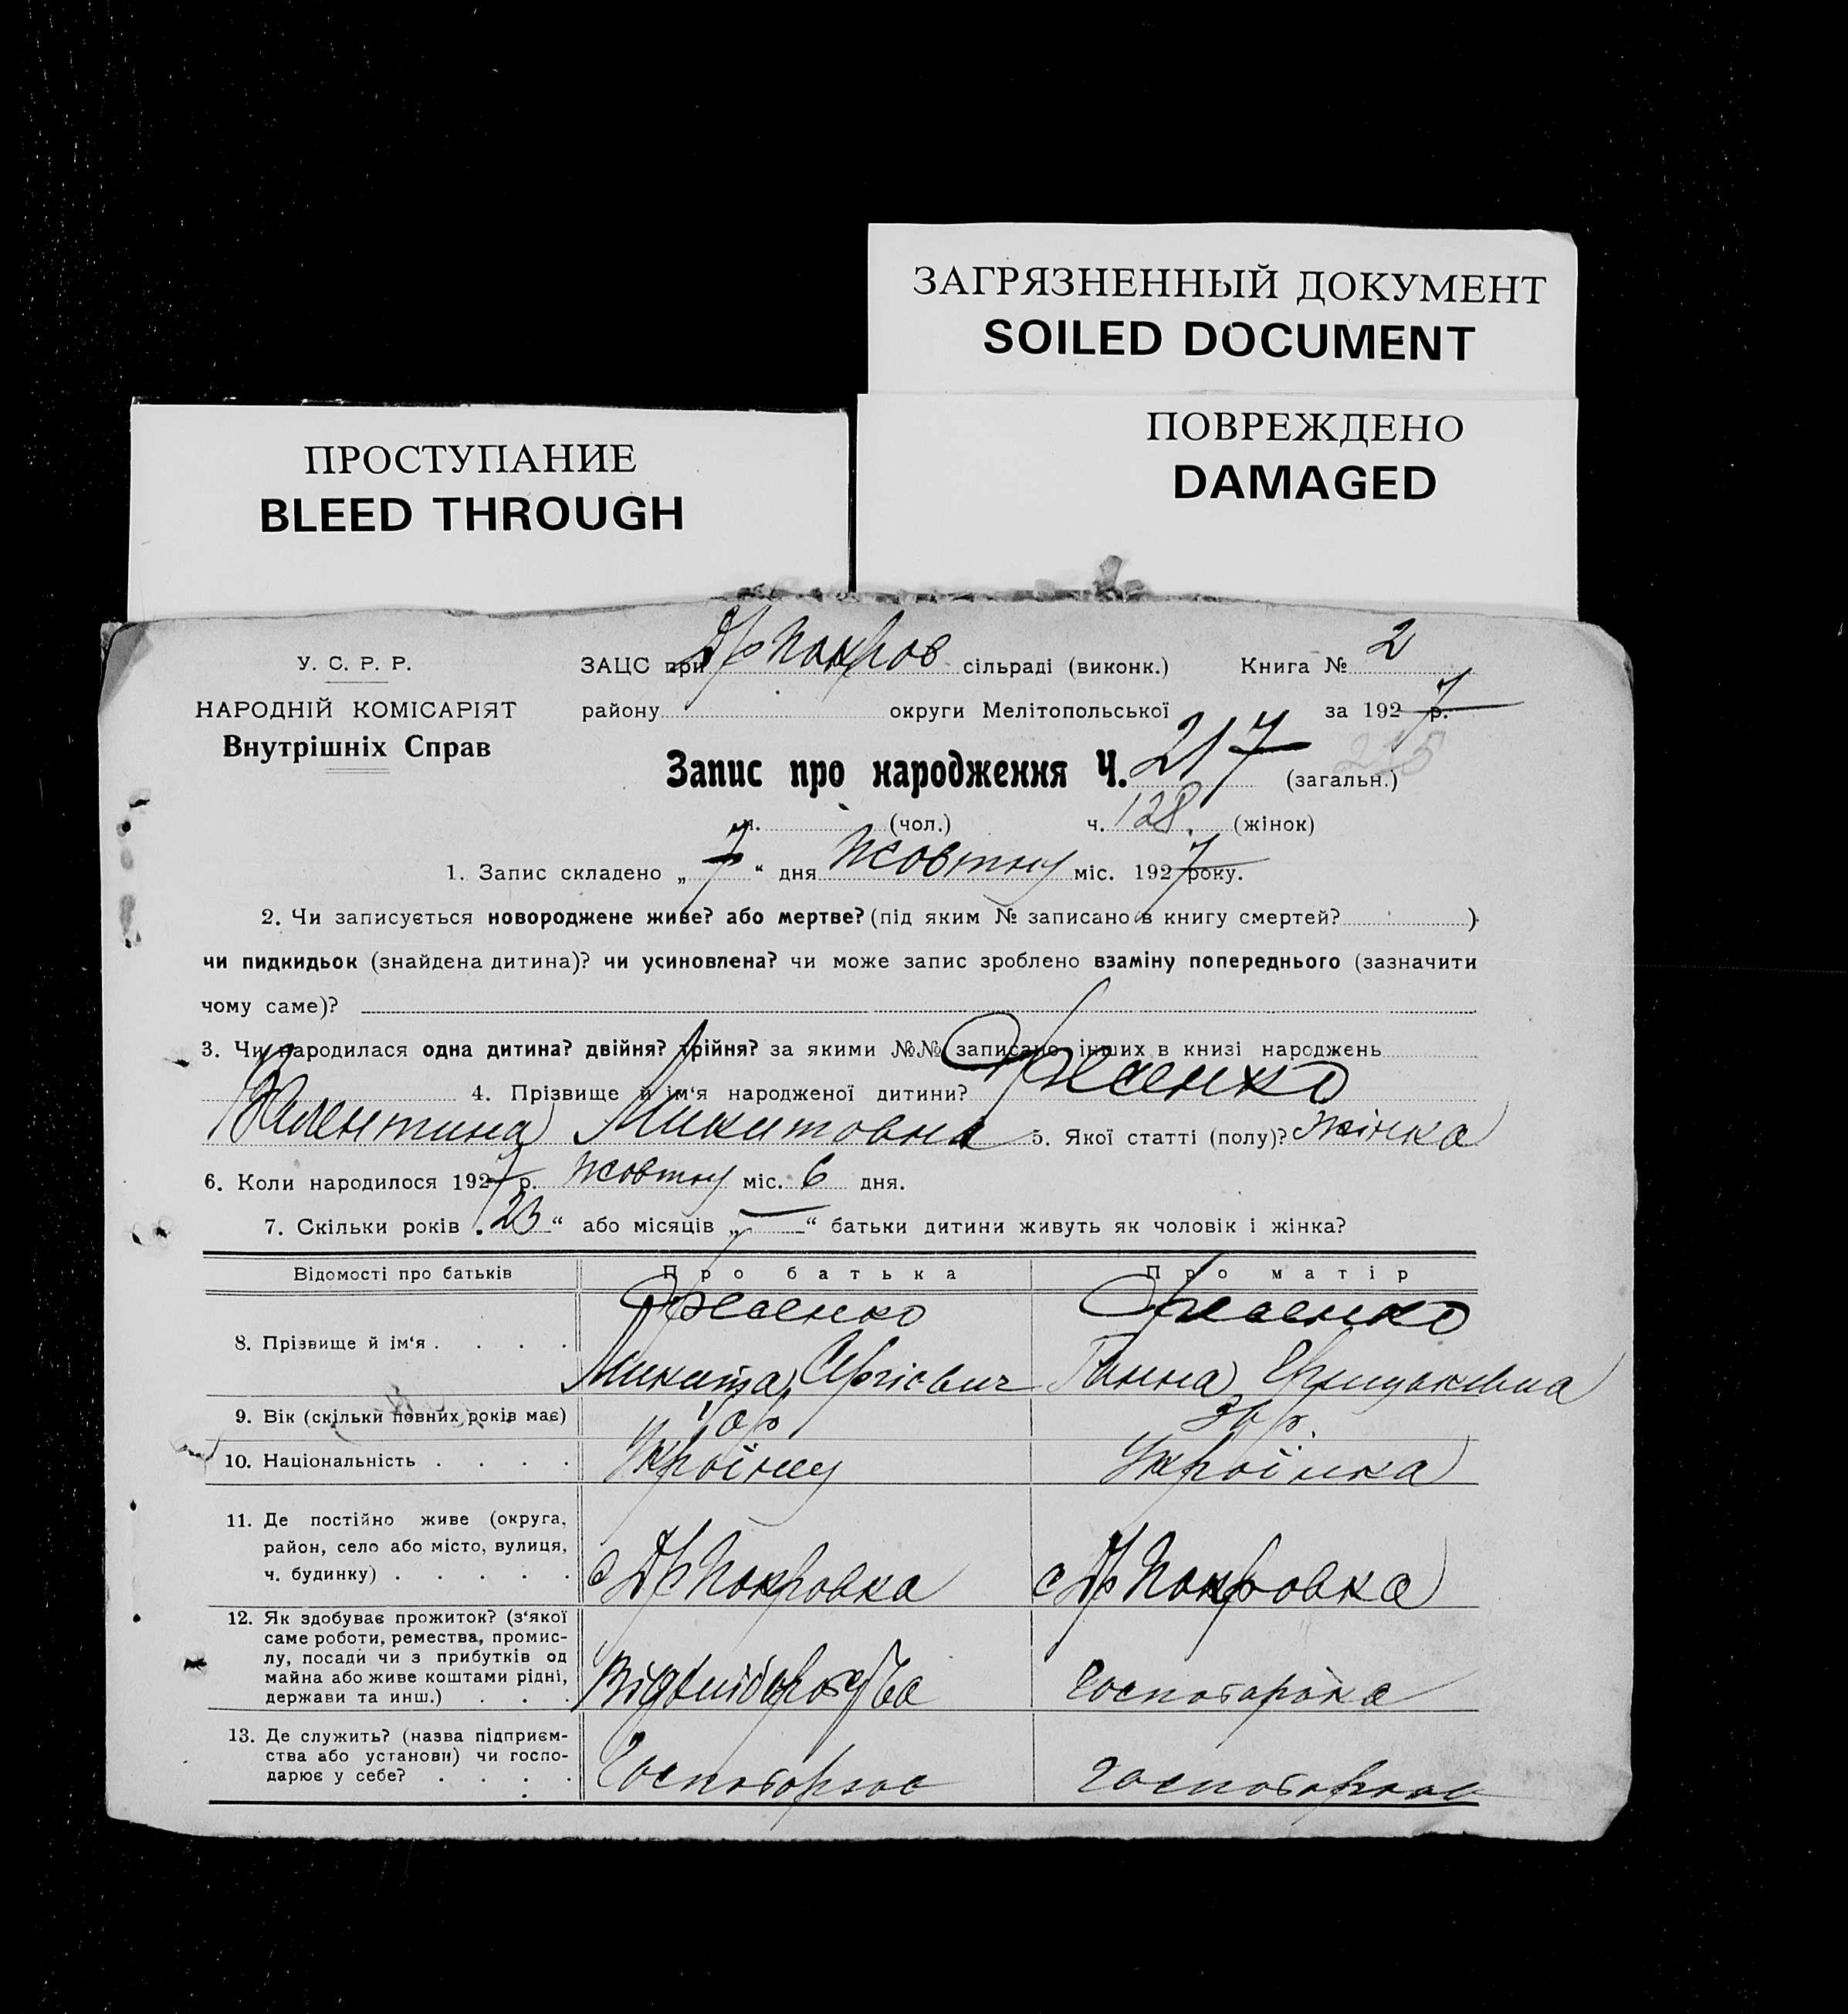 ЗАГРЯЗНЕННЫЙ ДОКУМЕНТ
SOILED DOCUMENT
ПОВРЕЖДЕНО
DAMAGED
ПРОСТУПАНИЕ
BLEED THROUGH
У. С. Р. Р.
НАРОДНІЙ КОМІСАРІЯТ
Внутрішніх Справ
ЗАЦС при Др Покров сільраді (виконк.) Книга № 2
району округи Мелітопольської за 1927 р.
Запис про народження Ч. 217 (загальн.) 215
ч. (чол.) ч. 128. (жінок)
1. Запис складено „7“ дня жовтня міс. 1927 року.
2. Чи записується новороджене живе? або мертве? (під яким № записано в книгу смертей? )
чи пидкидьок (знайдена дитина)? чи усиновлена? чи може запис зроблено взаміну попереднього (зазначити
чому саме)?
3. Чи народилася одна дитина? двійня? трійня? за якими №№ записано інших в книзі народжень
4. Прізвище й ім‘я народженої дитини?
Валентина Микитовна 5. Якої статті (полу)? жінка
6. Коли народилося 1927 р. жовтня міс. 6 дня.
7. Скільки років „23“ або місяців „—“ батьки дитини живуть як чоловік і жінка?
Відомості про батьків Про батька Про матір
8. Прізвище й ім‘я . . . .
Микита Сергієвич Ганна
9. Вік (скільки повних років має)
10. Національність . . . . Українец Українка
11. Де постійно живе (округа,
район, село або місто, вулиця,
ч. будинку) . . . . . с Др Покровка с Др Покровка
12. Як здобуває прожиток? (з‘якої
саме роботи, ремества, промис-
лу, посади чи з прибутків од
майна або живе коштами рідні,
держави та инш.) . . . Від хліборобства господарка
13. Де служить? (назва підприєм-
ства або установи) чи госпо-
дарює у себе? . . . .